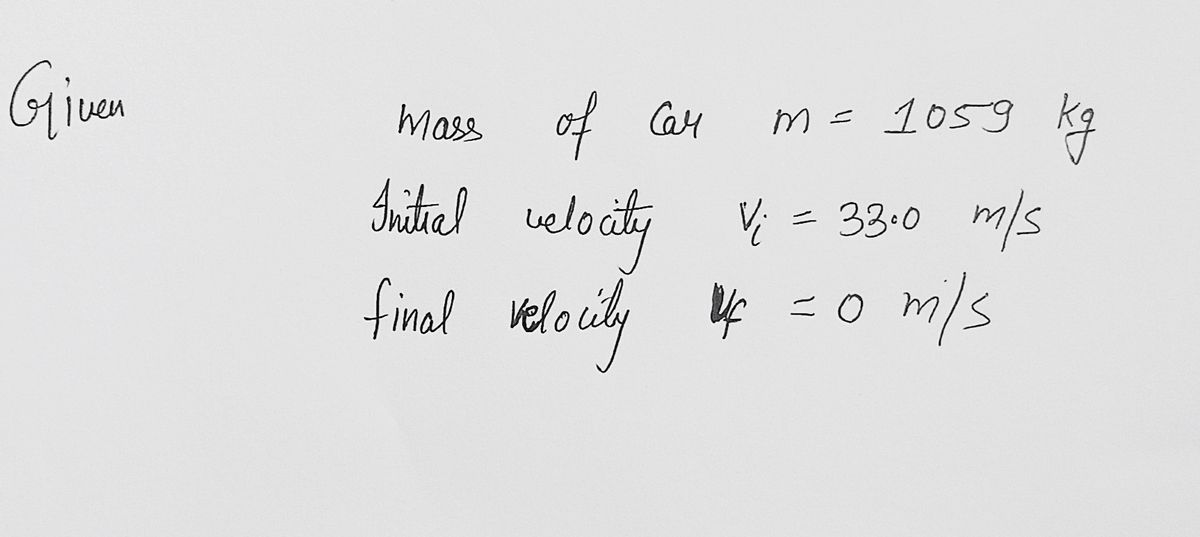 Given
mass of Car m = 1059 kg
Initial velocity Vi = 33.0 m/s
final velocity Vf = 0 m/s